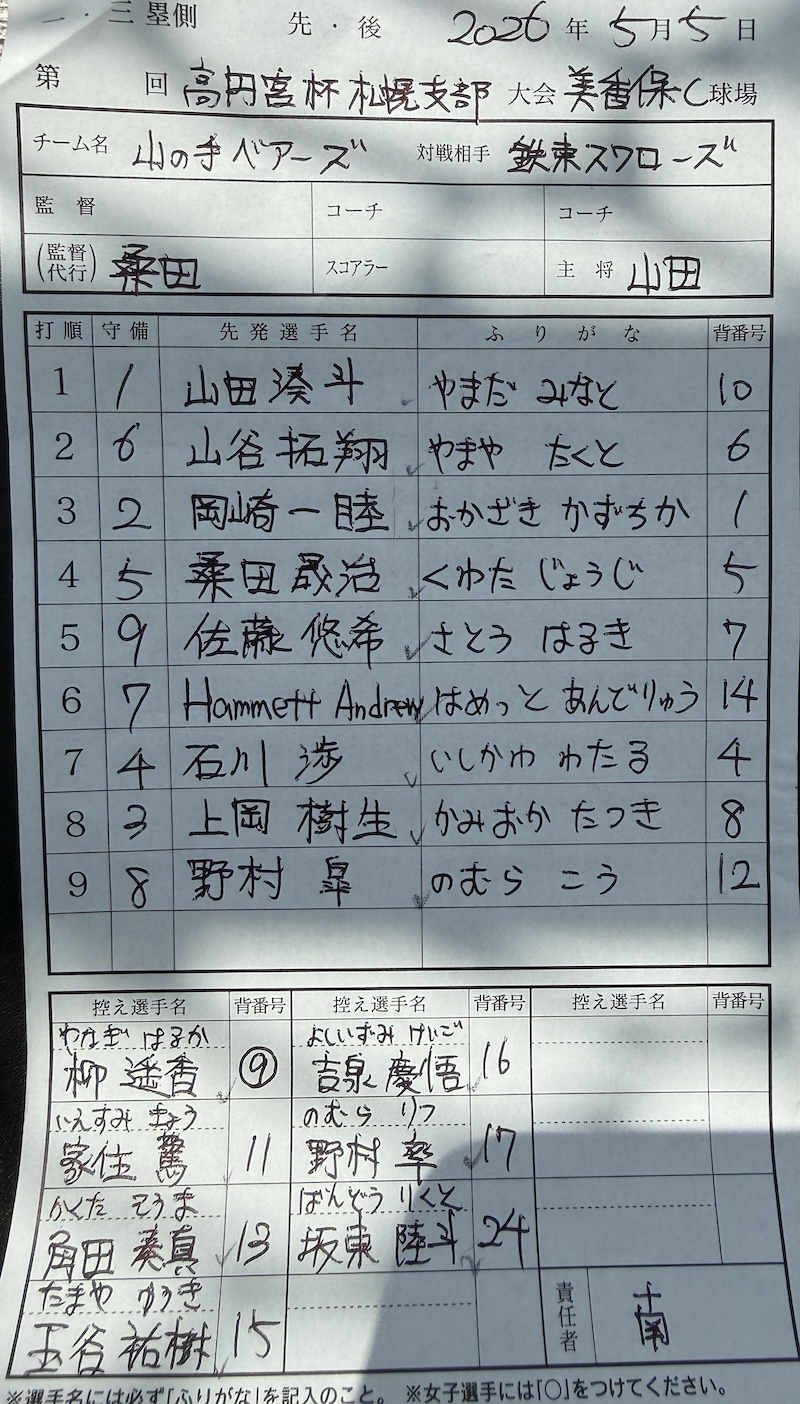 一・三塁側 先・後 2026年5月5日
第 回 高円宮杯札幌支部 大会 美香保C球場
チーム名 山の手ベアーズ 対戦相手 鉄東スワローズ
監督 コーチ コーチ
(監督代行) 桑田 スコアラー 主将 山田
打順 守備 先発選手名 ふりがな 背番号
1 1 山田湊斗 やまだ みなと 10
2 6 山谷拓翔 やまや たくと 6
3 2 岡崎一睦 おかざき かずちか 1
4 5 桑田晟治 くわた じょうじ 5
5 9 佐藤悠希 さとう はるき 7
6 7 Hammett Andrew はめっと あんどりゅう 14
7 4 石川渉 いしかわ わたる 4
8 3 上岡樹生 かみおか たつき 8
9 8 野村皐 のむら こう 12
控え選手名 背番号 控え選手名 背番号 控え選手名 背番号
やなぎ はるか よしいずみ けいご
柳遥香 ⑨ 吉泉慶悟 16
いえすみ きょう のむら りつ
家住驚 11 野村率 17
かくた そうま ばんどう りくと
角田奏真 13 坂東陸斗 24
たまや ゆうき
玉谷祐樹 15 責任者 南
※選手名には必ず「ふりがな」を記入のこと。 ※女子選手には「○」をつけてください。